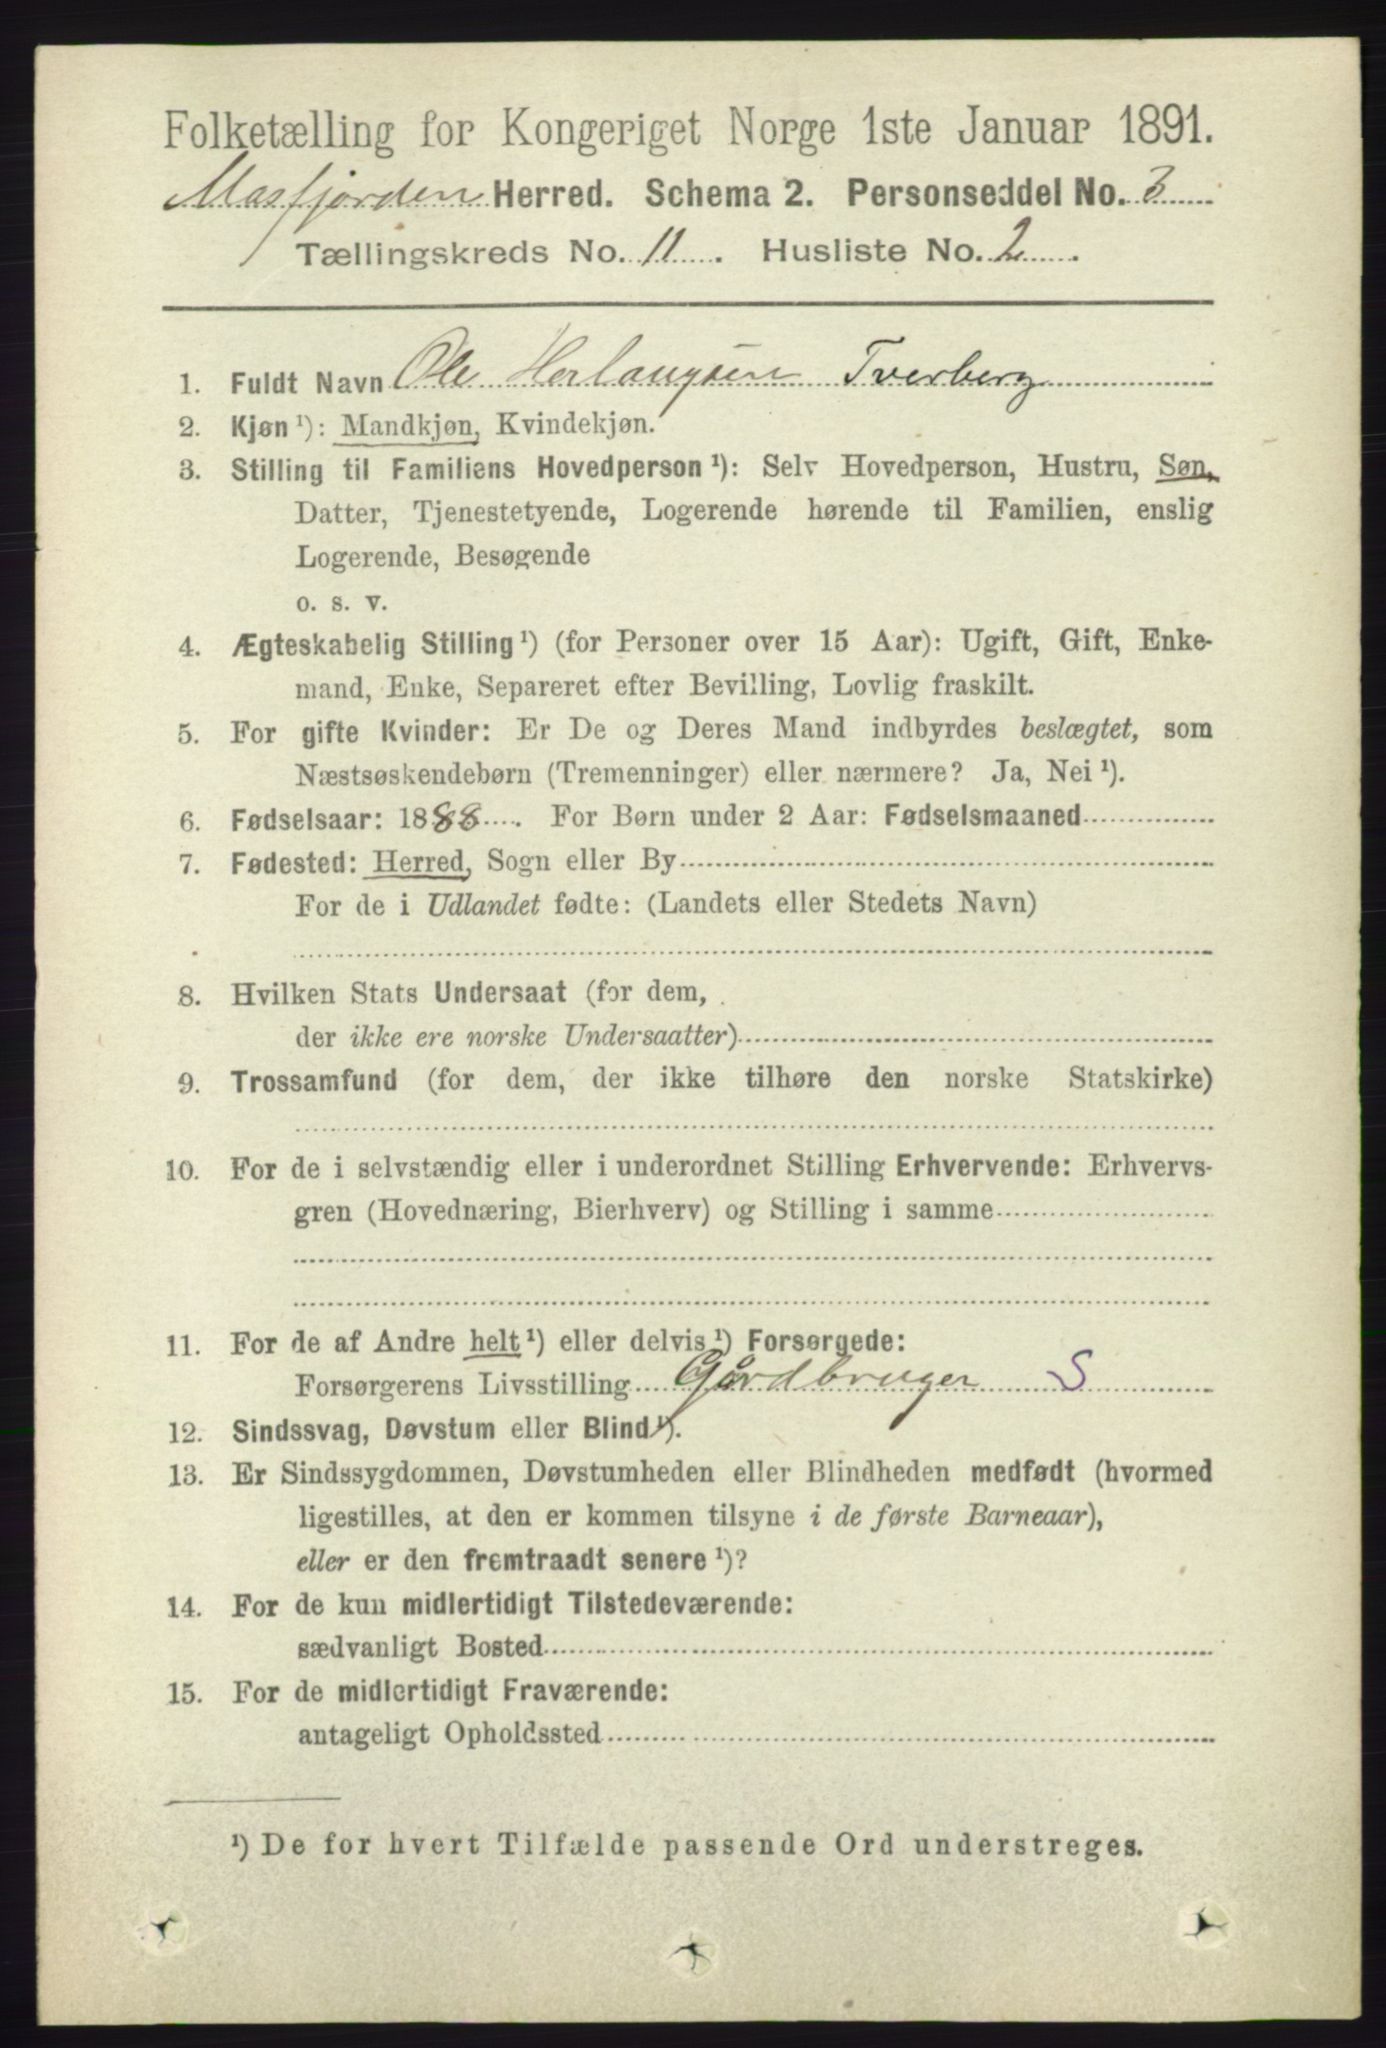 Folketælling for Kongeriget Norge 1ste Januar 1891.
Masfjorden Herred. Schema 2. Personseddel No. 3
Tællingskreds No. 11. Husliste No. 2.
1. Fuldt Navn Ole Herlaugsen Tverberg
2. Kjøn ¹): Mandkjøn, Kvindekjøn.
3. Stilling til Familiens Hovedperson ¹): Selv Hovedperson, Hustru, Søn,
Datter, Tjenestetyende, Logerende hørende til Familien, enslig
Logerende, Besøgende
o. s. v.
4. Ægteskabelig Stilling ¹) (for Personer over 15 Aar): Ugift, Gift, Enke-
mand, Enke, Separeret efter Bevilling, Lovlig fraskilt.
5. For gifte Kvinder: Er De og Deres Mand indbyrdes beslægtet, som
Næstsøskendebørn (Tremenninger) eller nærmere? Ja, Nei ¹).
6. Fødselsaar: 1888. For Børn under 2 Aar: Fødselsmaaned
7. Fødested: Herred, Sogn eller By
For de i Udlandet fødte: (Landets eller Stedets Navn)
8. Hvilken Stats Undersaat (for dem,
der ikke ere norske Undersaatter)
9. Trossamfund (for dem, der ikke tilhøre den norske Statskirke)
10. For de i selvstændig eller i underordnet Stilling Erhvervende: Erhvervs-
gren (Hovednæring, Bierhverv) og Stilling i samme
11. For de af Andre helt ¹) eller delvis ¹) Forsørgede:
Forsørgerens Livsstilling Gårdbruger S
12. Sindssvag, Døvstum eller Blind ¹).
13. Er Sindssygdommen, Døvstumheden eller Blindheden medfødt (hvormed
ligestilles, at den er kommen tilsyne i de første Barneaar),
eller er den fremtraadt senere ¹)?
14. For de kun midlertidigt Tilstedeværende:
sædvanligt Bosted
15. For de midlertidigt Fraværende:
antageligt Opholdssted
¹) De for hvert Tilfælde passende Ord understreges.